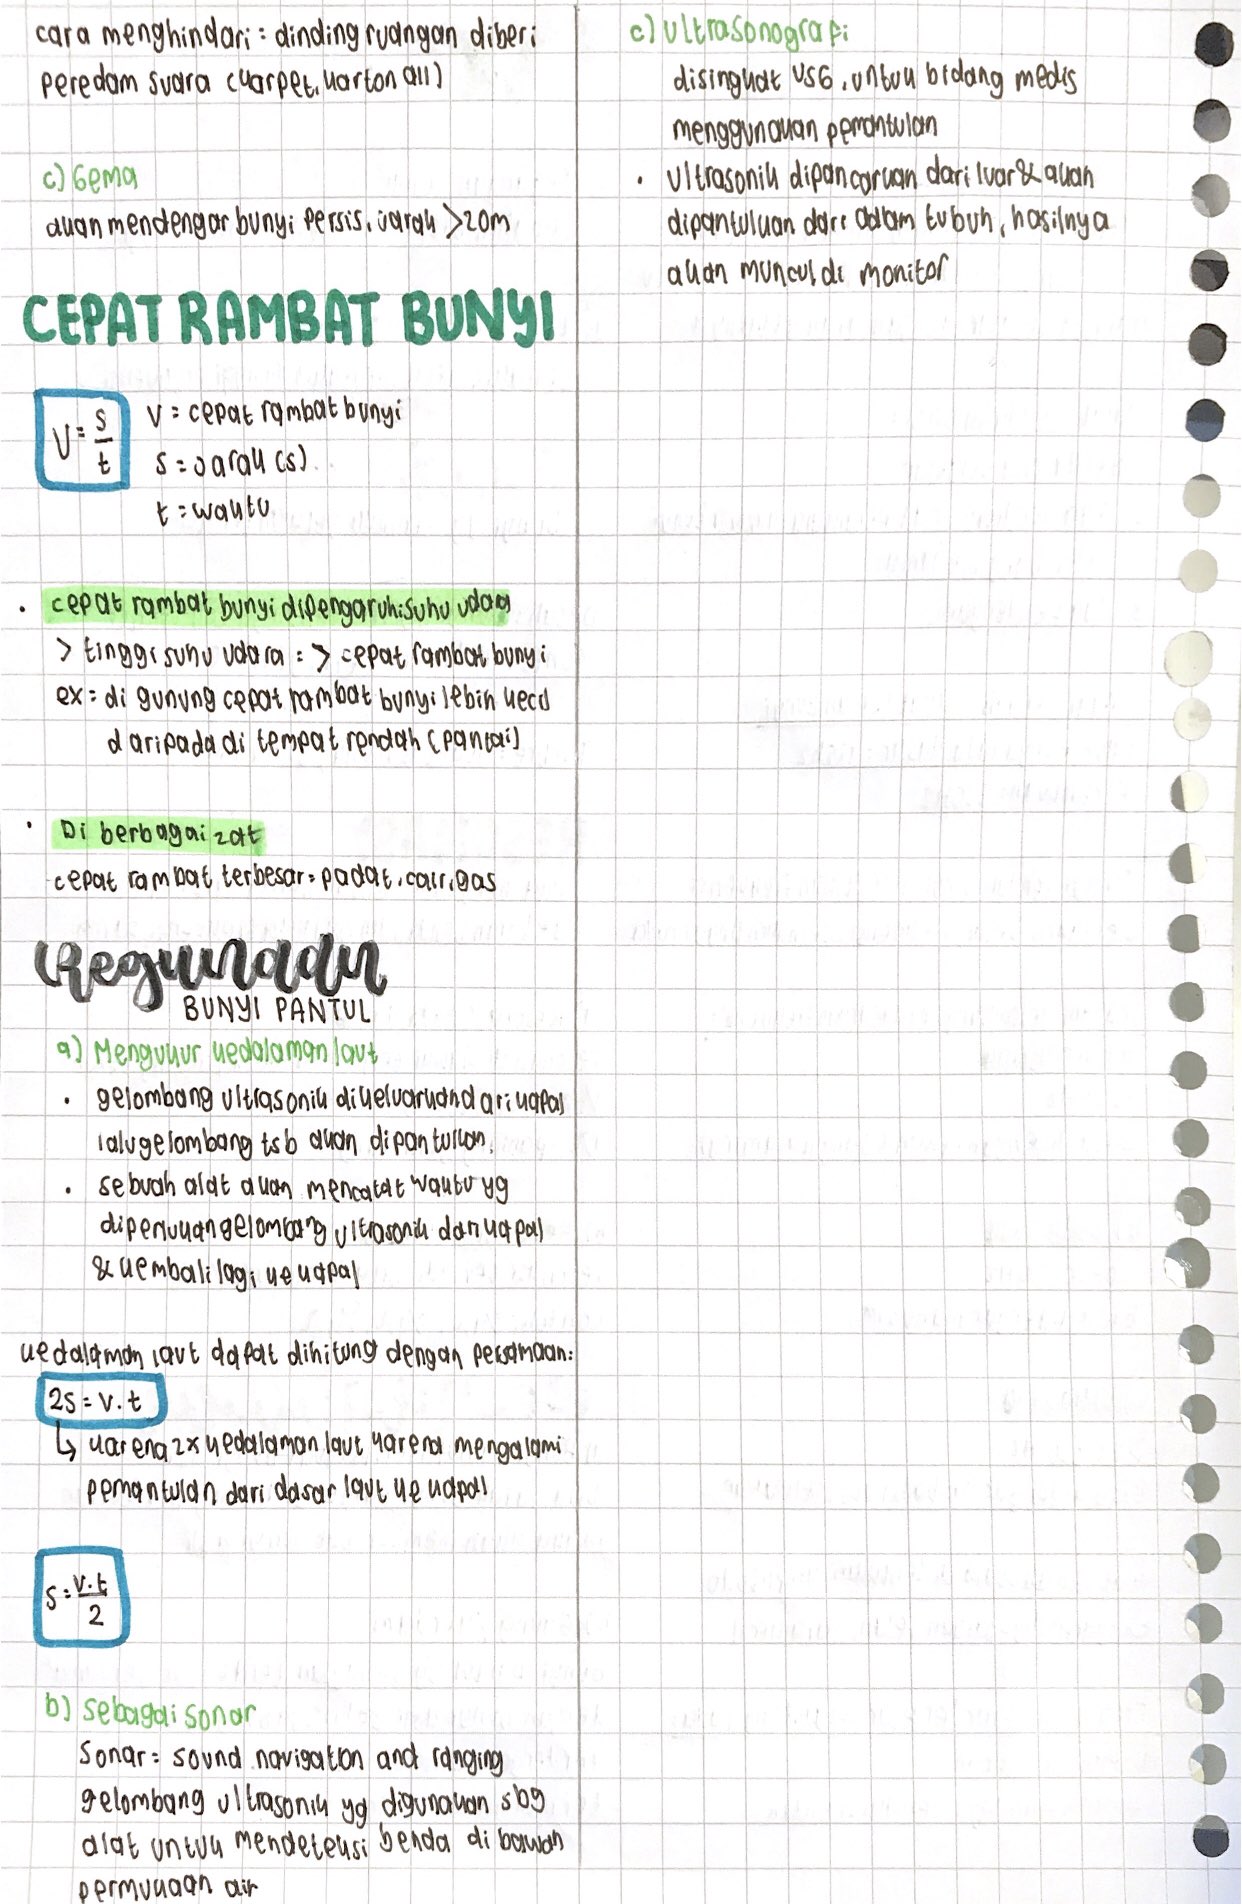 cara menghindari : dinding ruangan diberi
peredam suara (karpet, karton dll)
c) Gema
akan mendengar bunyi persis, jarak >20m
CEPAT RAMBAT BUNYI
V = s/t
V = cepat rambat bunyi
s = jarak (s)
t = waktu
• cepat rambat bunyi dipengaruhi suhu udara
> tinggi suhu udara = > cepat rambat bunyi
ex : di gunung cepat rambat bunyi lebih kecil
daripada di tempat rendah (pantai)
• Di berbagai zat
cepat rambat terbesar : padat, cair, gas
Kegunaan
BUNYI PANTUL
a) Mengukur kedalaman laut
• gelombang ultrasonik dikeluarkan dari kapal
lalu gelombang tsb akan dipantulkan.
• sebuah alat akan mencatat waktu yg
diperlukan gelombang ultrasonik dari kapal
& kembali lagi ke kapal
kedalaman laut dapat dihitung dengan persamaan:
2s = v . t
↳ karena 2x kedalaman laut karena mengalami
pemantulan dari dasar laut ke kapal
s = v.t/2
b) sebagai sonar
Sonar = sound navigation and ranging
gelombang ultrasonik yg digunakan sbg
alat untuk mendeteksi benda di bawah
permukaan air
c) Ultrasonografi
disingkat USG, untuk bidang medis
menggunakan pemantulan
• ultrasonik dipancarkan dari luar & akan
dipantulkan dari dalam tubuh, hasilnya
akan muncul di monitor